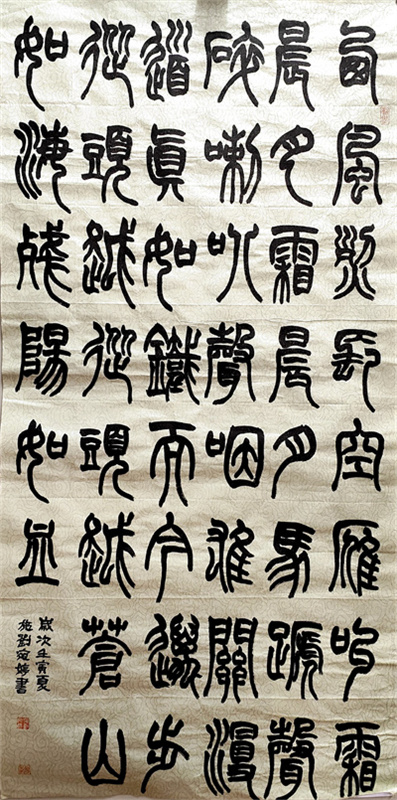 西風烈長空雁叫霜
晨月霜晨月馬蹄聲
碎喇叭聲咽雄關漫
道眞如鐵而今邁步
從頭越從頭越蒼山
如海殘陽如血
歲次壬寅夏
劉書